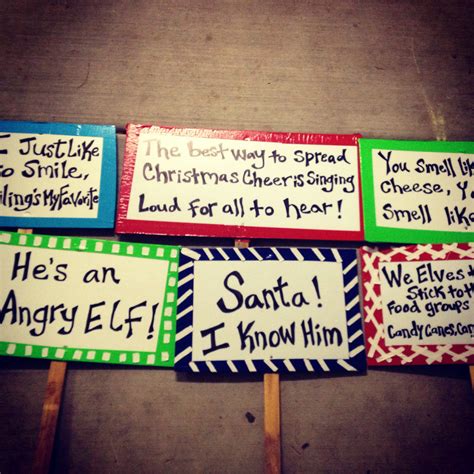 I Just Like
to Smile,
My Favorite
The best way to Spread
Christmas Cheer is Singing
Loud for all to hear!
You smell
Cheese,
Smell
He's an
Angry Elf!
Santa!
I Know Him
We Elves
Stick to
Food groups
Candy Canes,